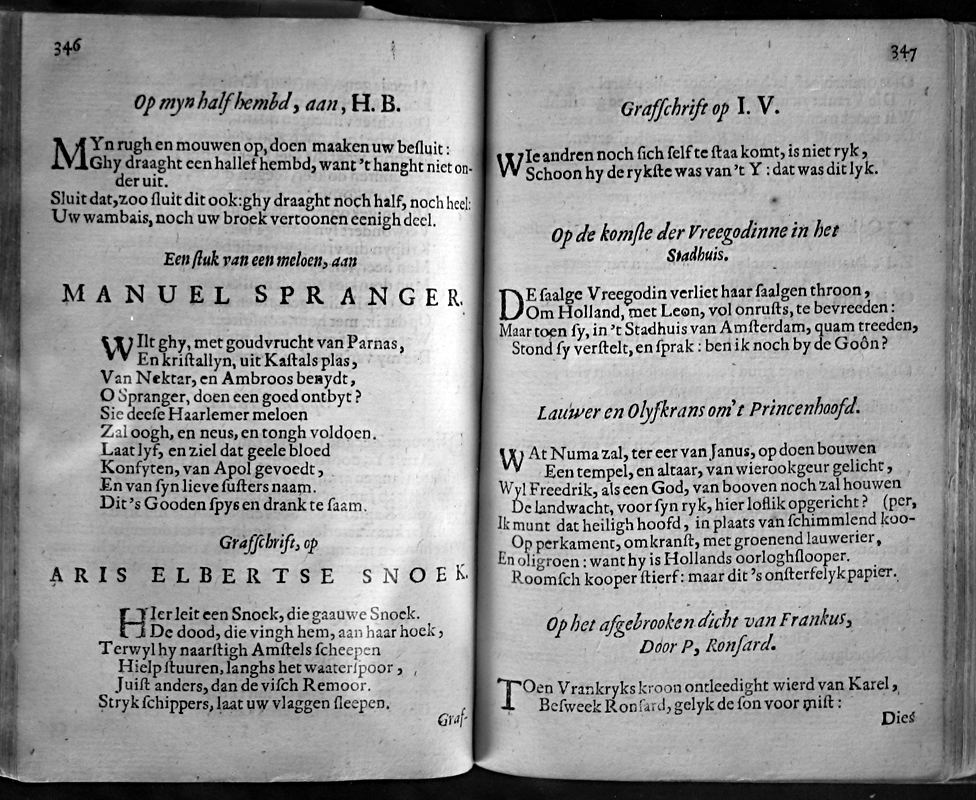 346
Op myn half hembd, aan, H. B.
MYn rugh en mouwen op, doen maaken uw beſluit:
Ghy draaght een hallef hembd, want 't hanght niet on-
der uit.
Sluit dat, zoo ſluit dit ook: ghy draaght noch half, noch heel:
Uw wambais, noch uw broek vertoonen eenigh deel.
Een ſtuk van een meloen, aan
MANUEL SPRANGER.
WIlt ghy, met goudvrucht van Parnas,
En kriſtallyn, uit Kaſtals plas,
Van Nektar, en Ambroos benydt,
O Spranger, doen een goed ontbyt?
Sie deeſe Haarlemer meloen
Zal oogh, en neus, en tongh voldoen.
Laat lyf, en ziel dat geele bloed
Konfyten, van Apol gevoedt,
En van ſyn lieve ſuſters naam.
Dit 's Gooden ſpys en drank te ſaam.
Grafſchrift, op
ARIS ELBERTSE SNOEK.
HIer leit een Snoek, die gaauwe Snoek.
De dood, die vingh hem, aan haar hoek,
Terwyl hy naarſtigh Amſtels ſcheepen
Hielp ſtuuren, langhs het waaterſpoor,
Juiſt anders, dan de viſch Remoor.
Stryk ſchippers, laat uw vlaggen ſleepen.
Graf-
347
Grafſchrift op I. V.
WIe andren noch ſich ſelf te ſtaa komt, is niet ryk,
Schoon hy de rykſte was van 't Y: dat was dit lyk.
Op de komſte der Vreegodinne in het
Stadhuis.
DE ſaalge Vreegodin verliet haar ſaalgen throon,
Om Holland, met Leon, vol onruſts, te bevreeden:
Maar toen ſy, in 't Stadhuis van Amſterdam, quam treeden,
Stond ſy verſtelt, en ſprak: ben ik noch by de Goôn?
Lauwer en Olyfkrans om't Princenhoofd.
WAt Numa zal, ter eer van Janus, op doen bouwen
Een tempel, en altaar, van wierookgeur gelicht,
Wyl Freedrik, als een God, van booven noch zal houwen
De landwacht, voor ſyn ryk, hier loflik opgericht? (per,
Ik munt dat heiligh hoofd, in plaats van ſchimmlend koo-
Op perkament, omkranſt, met groenend lauwerier,
En oligroen: want hy is Hollands oorloghſlooper.
Roomſch kooper ſtierf: maar dit 's onſterfelyk papier.
Op het afgebrooken dicht van Frankus,
Door P, Ronſard.
TOen Vrankryks kroon ontleedight wierd van Karel,
Beſweek Ronſard, gelyk de ſon voor miſt:
Dies